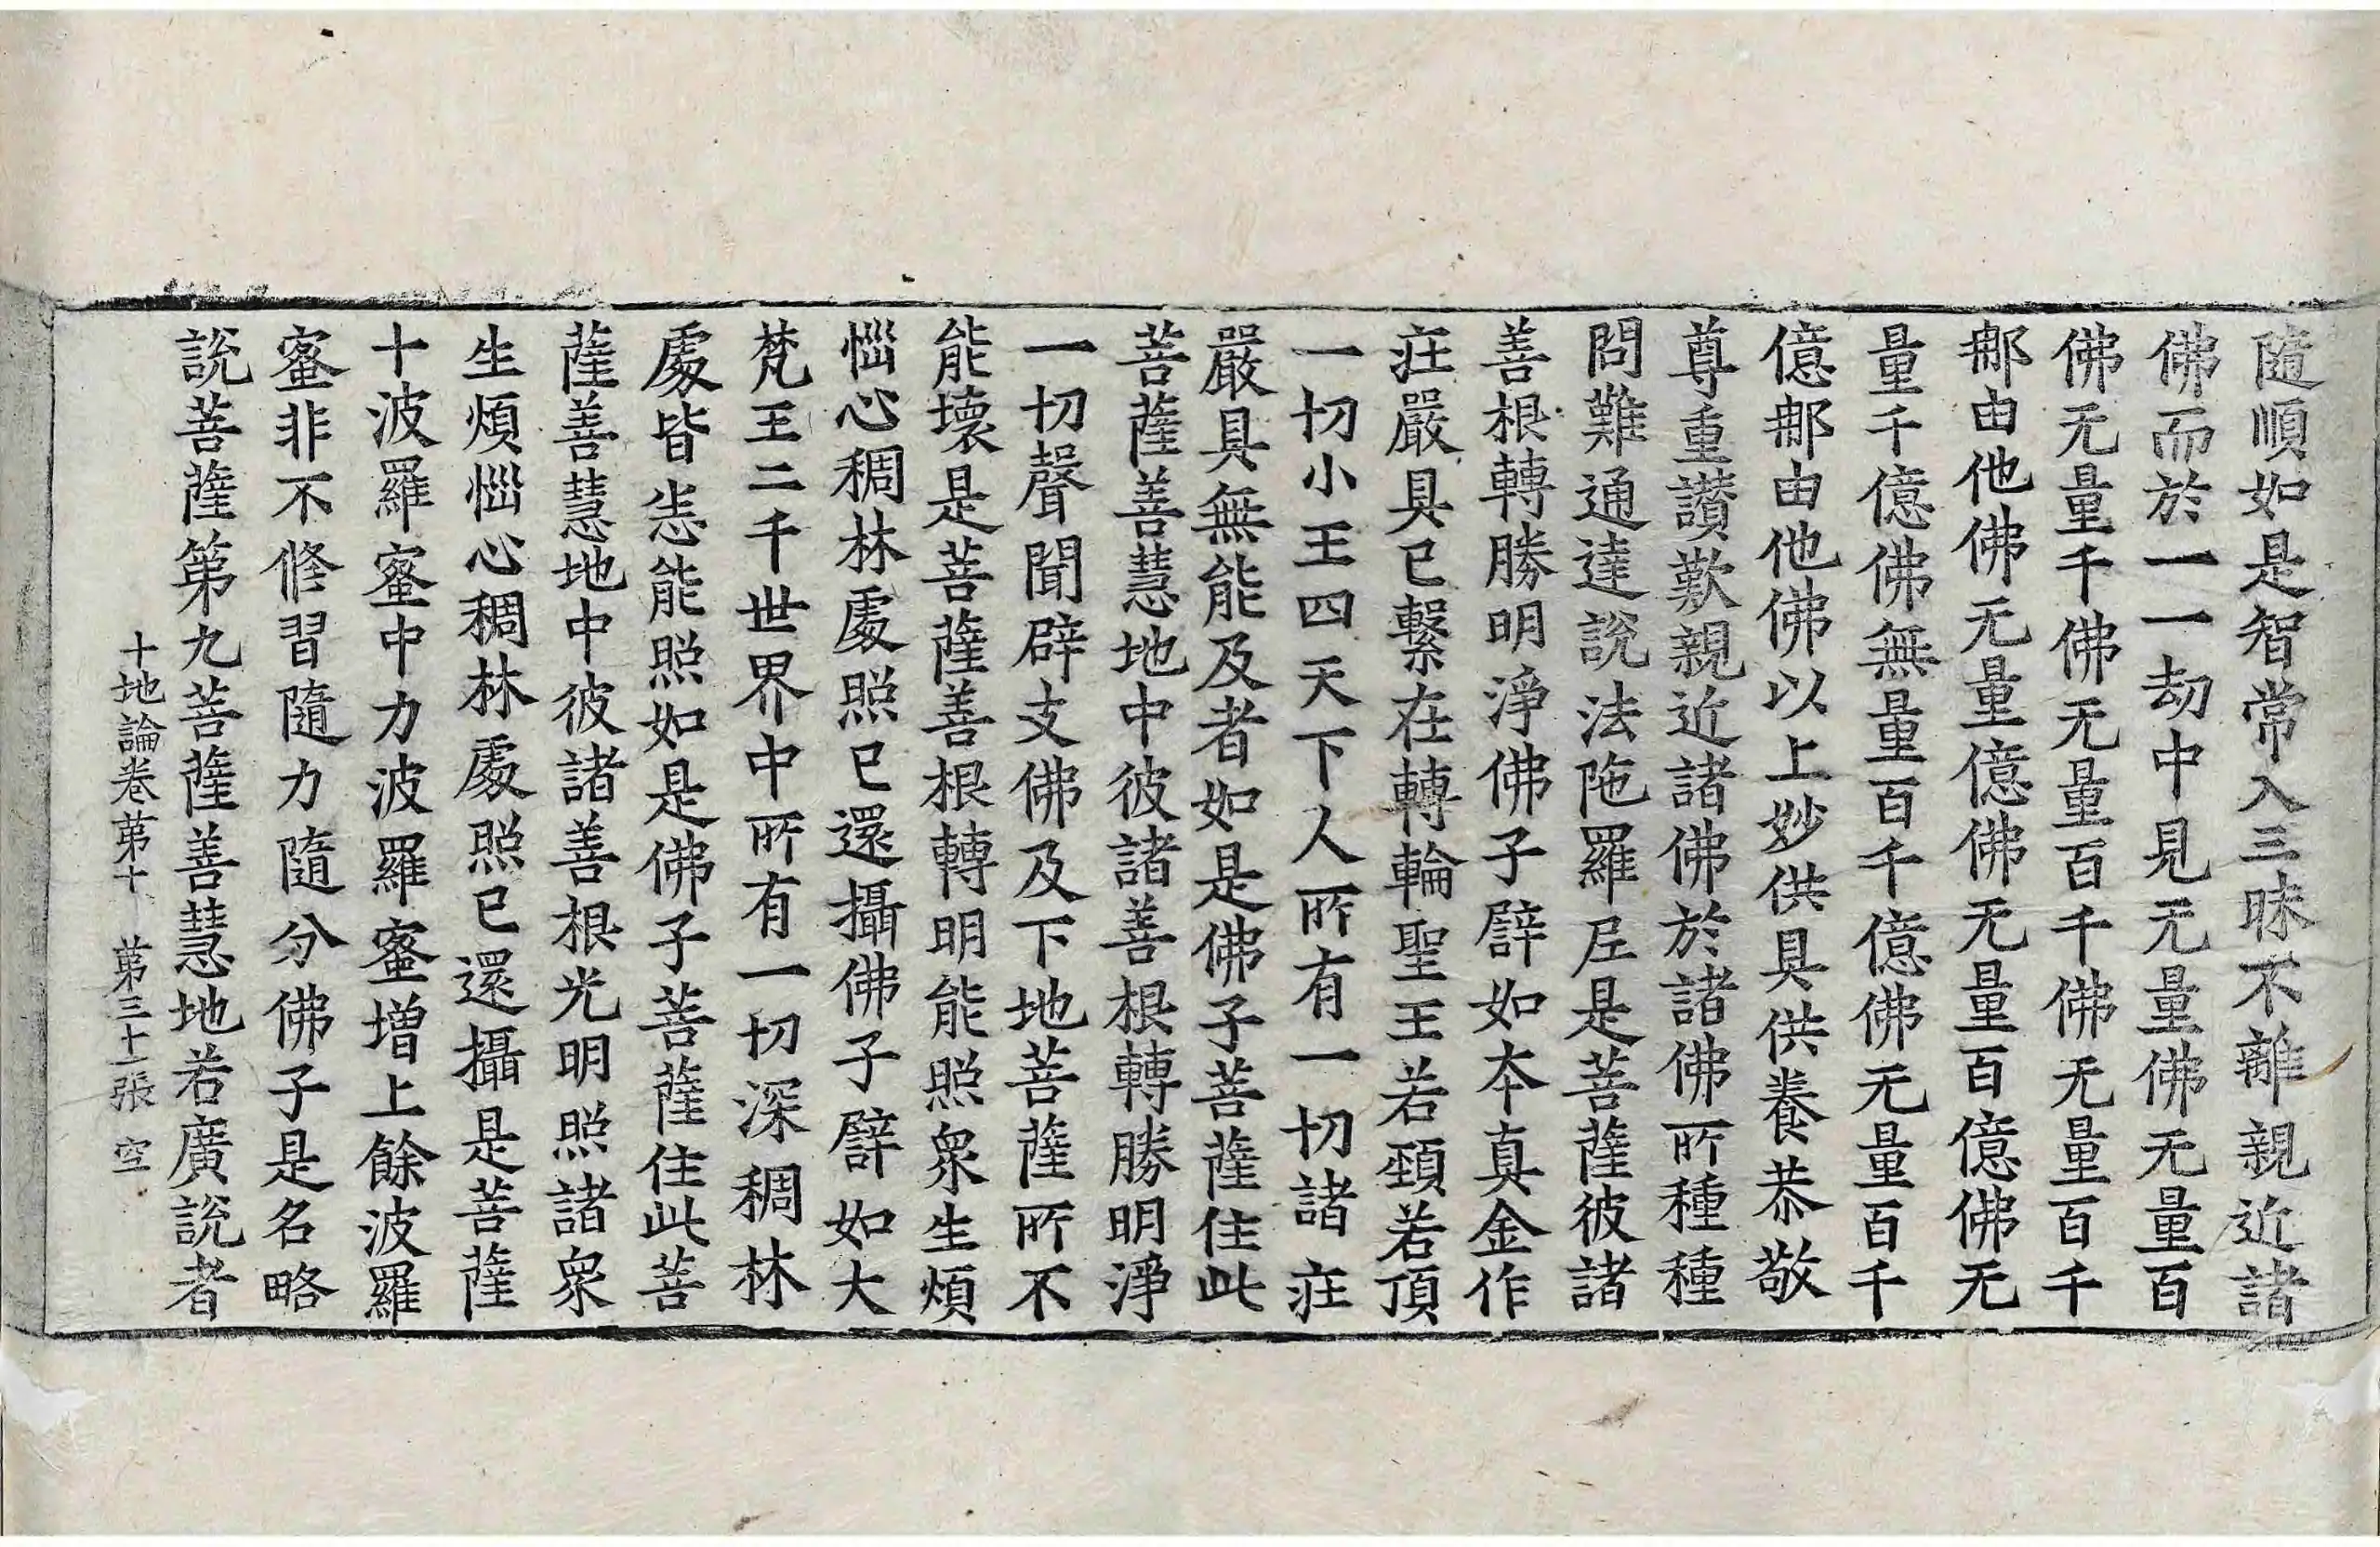 隨順如是智常入三昧不離親近諸
佛而於一一劫中見无量佛无量百
佛无量千佛无量百千佛无量百千
那由他佛无量億佛无量百億佛无
量千億佛無量百千億佛无量百千
億那由他佛以上妙供具供養恭敬
尊重讚歎親近諸佛於諸佛所種種
問難通達說法陁羅𡰱是菩薩彼諸
善根轉勝明淨佛子譬如本真金作
莊嚴具已繫在轉輪聖王若頸若頂
一切小王四天下人所有一切諸莊
嚴具無能及者如是佛子菩薩住此
菩薩善慧地中彼諸善根轉勝明淨
一切聲聞辟支佛及下地菩薩所不
能壞是菩薩善根轉明能照衆生煩
惱心稠林處照已還攝佛子譬如大
梵王二千世界中所有一切深稠林
處皆悉能照如是佛子菩薩住此菩
薩善慧地中彼諸善根光明照諸衆
生煩惱心稠林處照已還攝是菩薩
十波羅蜜中力波羅蜜增上餘波羅
蜜非不修習隨力隨分佛子是名略
說菩薩第九菩薩善慧地若廣說者
十地論卷第十 第三十二張 空